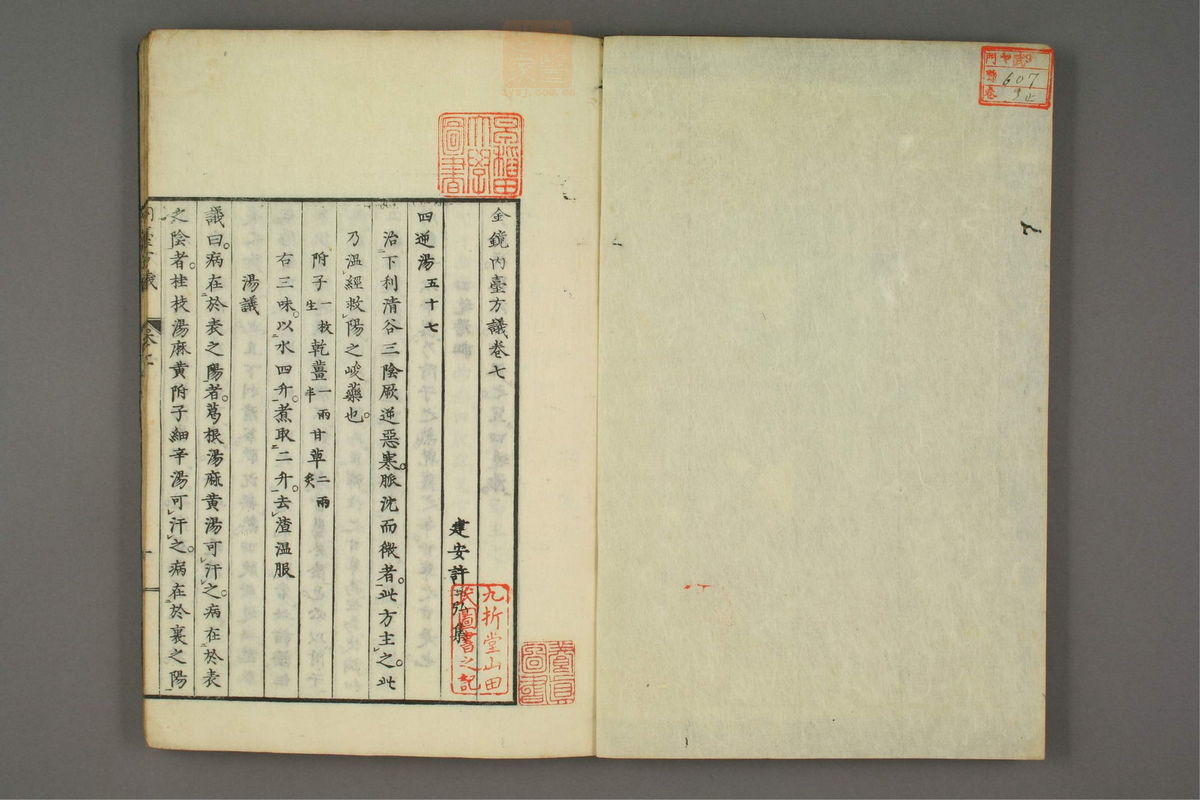 金鏡內臺方議卷七
建安許弘集
四逆湯五十七
治下利清谷三陰厥逆惡寒。脈沈而微者。此方主之。此
乃溫經救陽之峻藥也。
附子一枚生乾薑一兩半甘草二兩炙
右三味。以水四升。煮取二升。去渣溫服
湯議
議曰。病在於表之陽者。葛根湯麻黃湯可汗之。病在於表
之陰者。桂枝湯麻黃附子細辛湯可汗之。病在於裏之陽
九折堂山田
氏圖書之記
早稻田
大學
圖書
門
號 607
卷 9